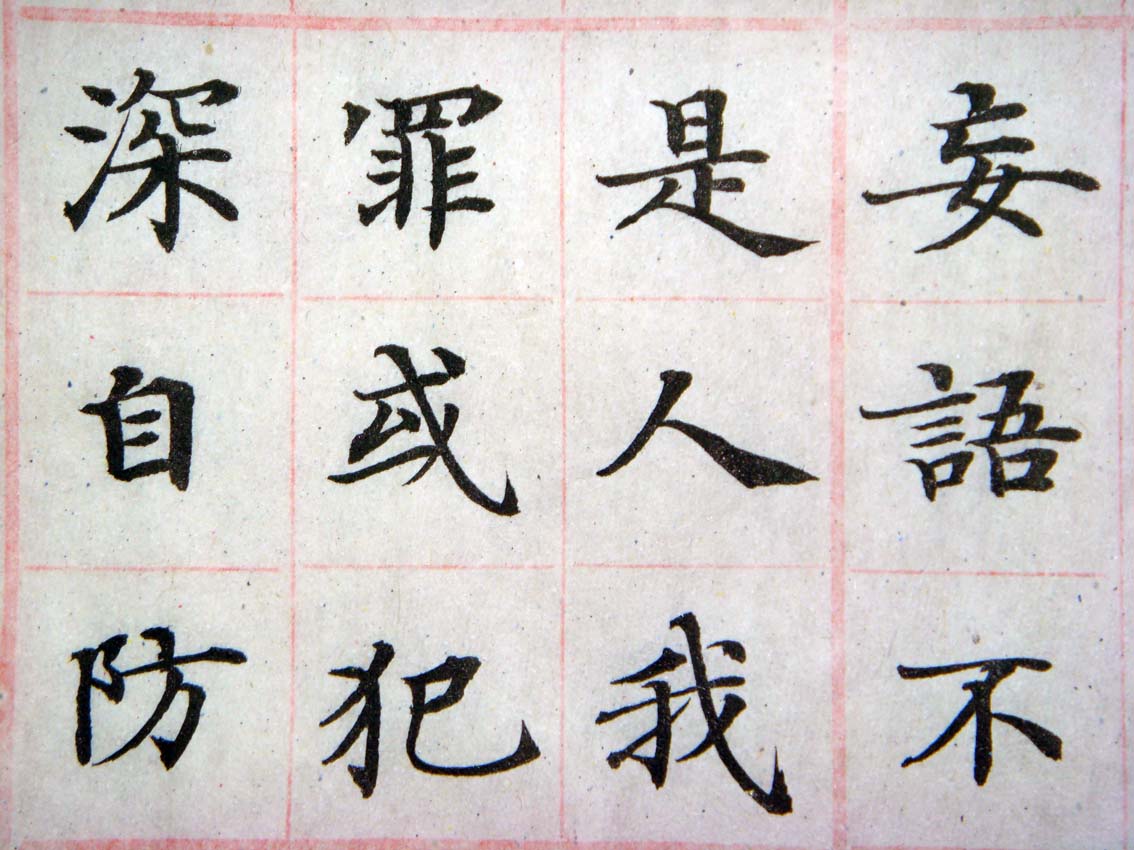 妄語不
是人我
罪或犯
深自防